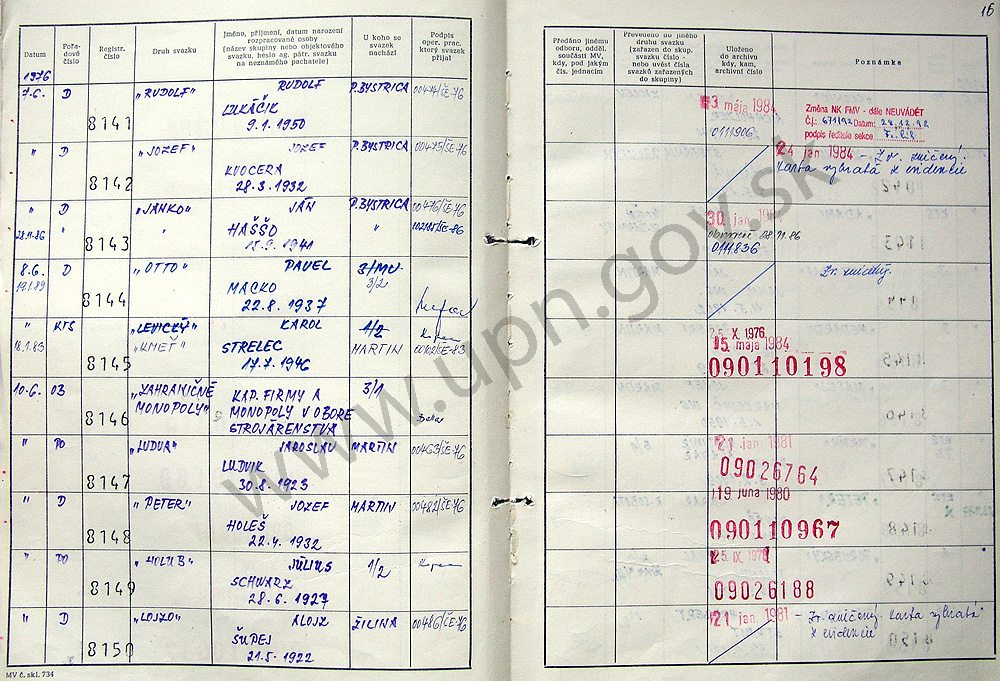 16
Datum
Pořadové číslo
Registr. číslo
Druh svazku
Jméno, příjmení, datum narození rozpracované osoby (název skupiny nebo objektového svazku, heslo ag. pátr. svazku na neznámého pachatele)
U koho se svazek nachází
Podpis oper. prac. který svazek přijal
Předáno jinému odboru, odděl. součásti MV, kdy, pod jakým čís. jednacím
Převedeno do jiného druhu svazku (zařazen do skup. svazku číslo - nebo uvést čísla svazků zařazených do skupiny)
Uloženo do archívu kdy, kam, archivní číslo
Poznámka
1976
7.6. D 8141 „RUDOLF" RUDOLF P.BYSTRICA 00474/ŠE-76
LUKÁČIK
9.1.1950
3 mája 1984
0111906
Změna NK FMV - dále NEUVÁDĚT
Č.j.: 671/92 Datum: 28.12.92
podpis ředitele sekce
" D 8142 „JOZEF" JOZEF P.BYSTRICA 00475/ŠE-76
KVOCERA
28.3.1932
24 jan 1984 - Zv. zničený.
Karta vybratá z evidencie
" D 8143 „JANKO" JÁN P.BYSTRICA 00476/ŠE-76
28.11.86 " " HAŠŠO "
30 jan
28.11.86
0111836
8.6. D 8144 „OTTO" PAVEL 3/MV
19.1.89 MACKO 3/2
22.8.1937
Zv. zničený.
" KTS 8145 „LEVICKÝ" KAROL 1/2
18.1.83 „KMEŤ" STRELEC MARTIN 00102/ŠE-83
17.7.1946
25. X. 1976
15. mája 1984
090110198
10.6. 03 8146 „ZAHRANIČNÉ MONOPOLY" KAP. FIRMY A 3/1
MONOPOLY V OBORE
STROJÁRENSTVA
" PO 8147 „LUDVA" JAROSLAV MARTIN 00463/ŠE-76
LUDVIK
30.8.1923
21 jan 1981
09026764
" D 8148 „PETER" JOZEF MARTIN 00482/ŠE-76
HOLEŠ
22.4.1932
19 júna 1980
090110967
" PO 8149 „HOLUB" JÚLIUS 1/2
SCHWARZ
28.6.1927
25. IX. 197
09026188
" D 8150 „LOJZO" ALOJZ ŽILINA 00486/ŠE-76
ŠUPEJ
21.5.1922
21 jan 1981 - Zv. zničený. Karta vybratá
z evidencie
MV č. skl. 734
www.upn.gov.sk